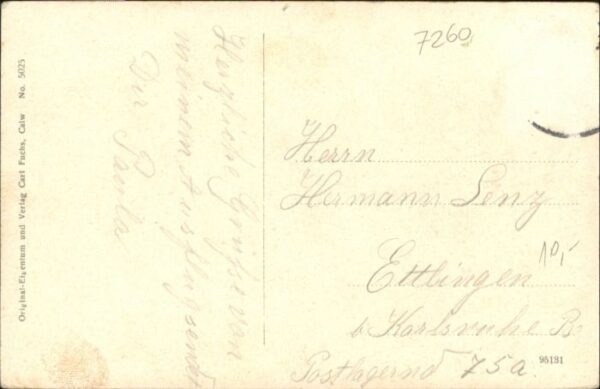 7260
Herzliche Grüße von
meinem Ausflug sendet
Dir Paula
Herrn
Hermann Lenz
Ettlingen
10,-
b. Karlsruhe B.
Postlagernd 75a.
95131
Original-Eigentum und Verlag Carl Fuchs, Calw No. 5025